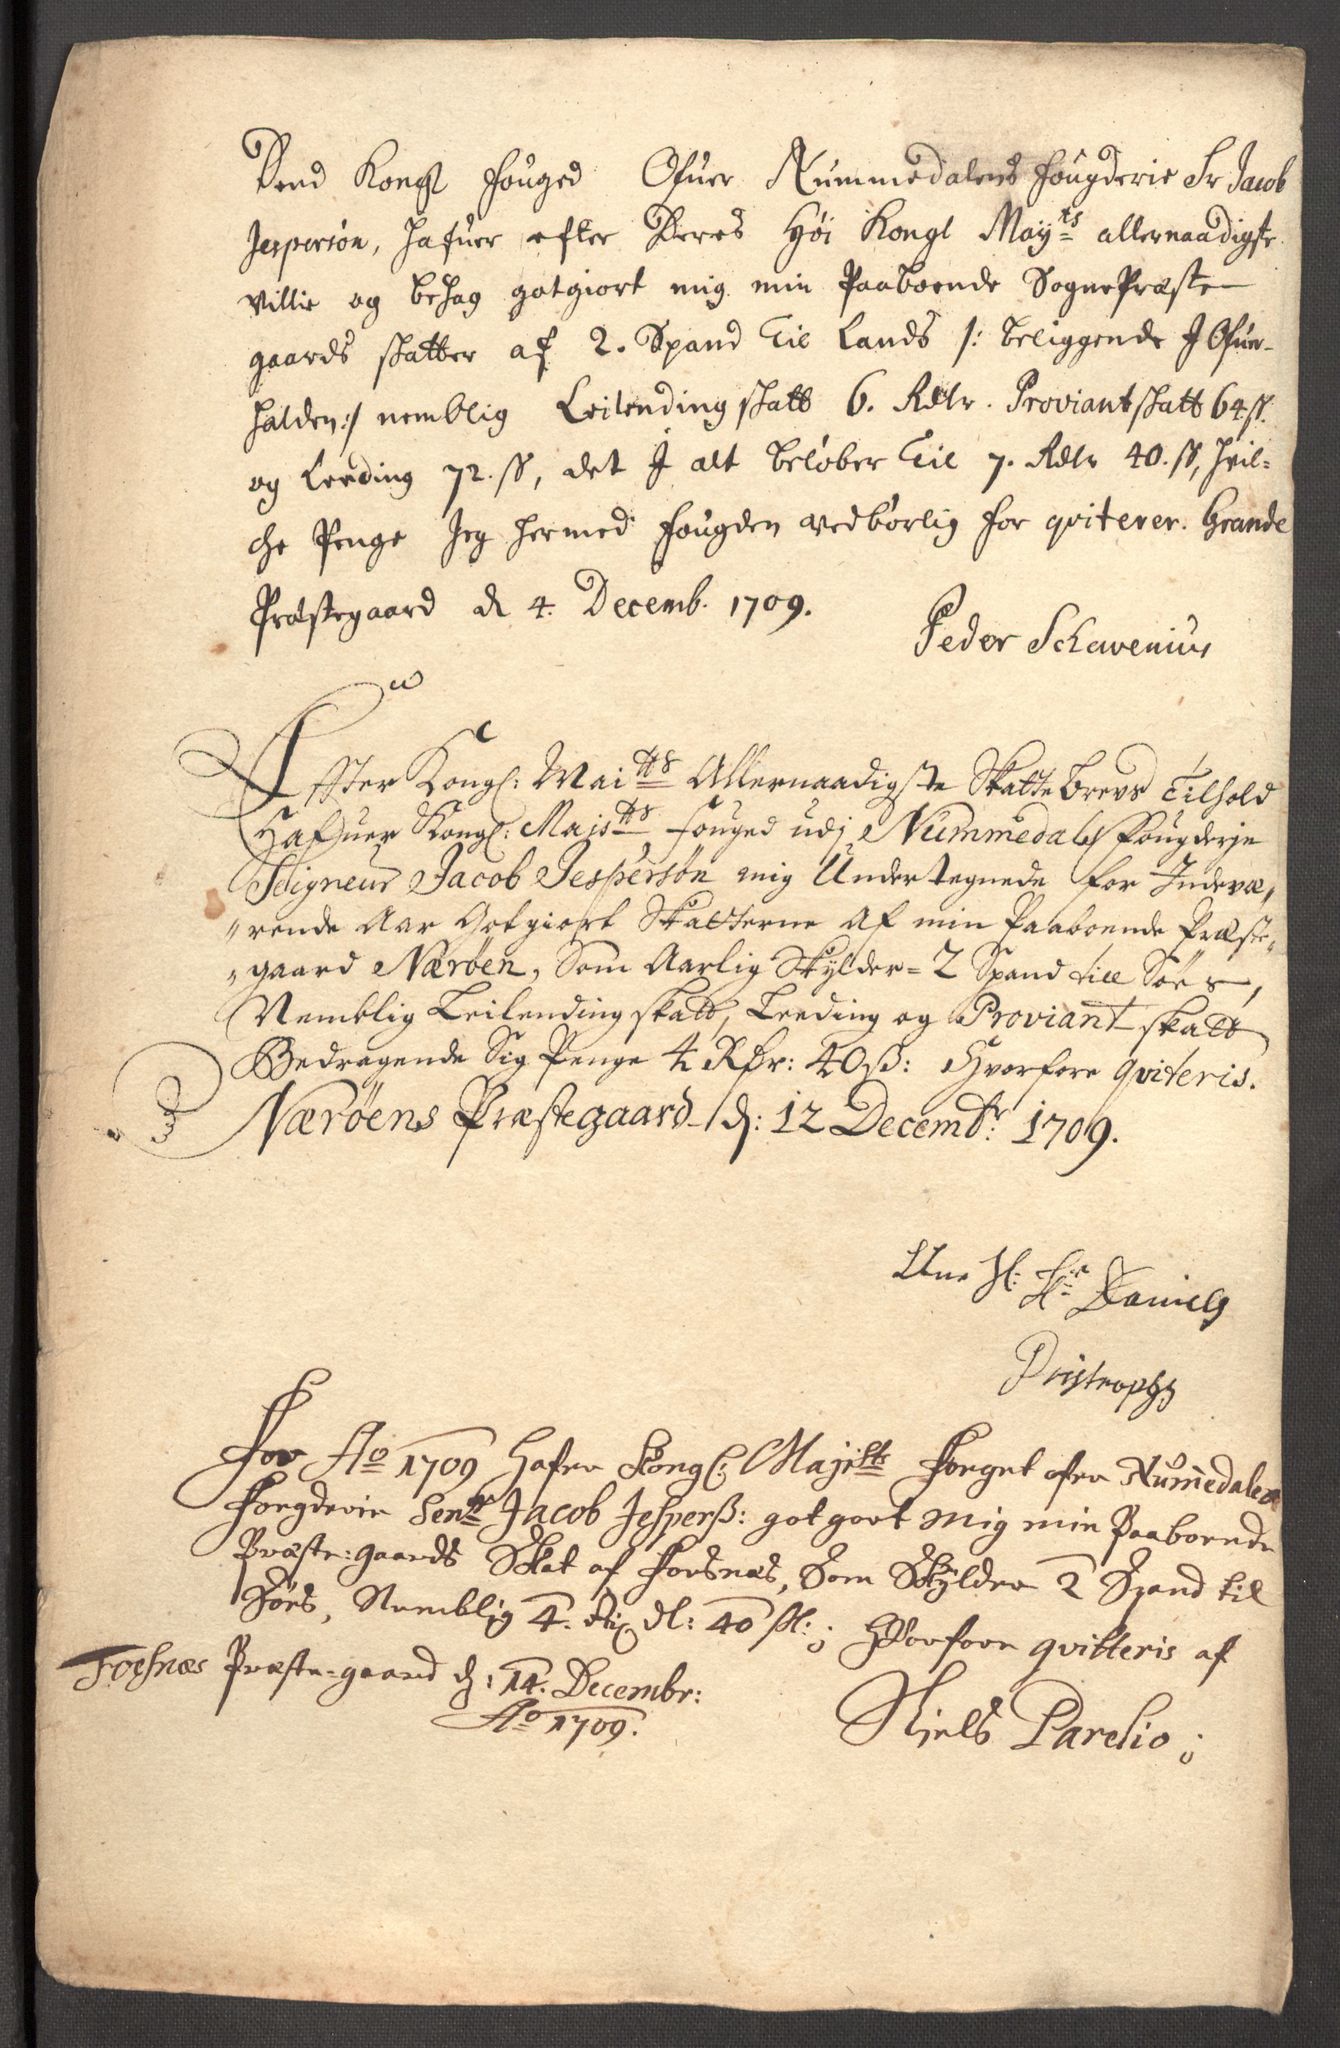 Dend Kongl Fouged Ofuer Nummedalens Fougderie Sr Jacob
Jespersøn, hafuer efter Deres Høi Kongl Mayts allernaadigste
villie og behag gotgiort mig min Paaboende SognePræste
gaards skatter af 2. Spand til Lands /: beliggende J Ofuer-
halden:/ nemblig Leilending skatt 6. Rdlr. Proviant skatt 64 ss.
og Leeding 72. ss, det J alt beløber til 7. Rdlr 40. ss, hvil-
che Penge Jeg hermed Fougden vedbørlig for qviterer. Grande
Præstegaard d 4. Decemb. 1709.
Peder Schavenius
Effter Kongl: Maitts Allernaadigste Skatte brevs tilhold
Hafuer Kongl: Majstts Fouged udj Nummedals Fougderje
Seigneur Jacob Jespersøn mig Undertegnede for Indevæ„
„rende Aar Gotgiort Skatterne af min Paaboende Præste„
„gaard Nærøen, Som Aarlig Skylder = 2 Spand till Søes,
Nemblig Leilending skatt, Leeding og Proviant skatt
Bedragende Sig Penge 4 Rdr: 40 ß: Hvorfore qviteris.
Nærøens Præstegaard d: 12 Decembr: 1709.
Ane Sl: Hr Daniels
For Ao 1709 Hafer Kongl: Majestts Foeget ofer Nummedalens
Foegderie Senr Jacob Jesperß: got giort mig min Paaboende
Præste-gaards Skat af Foesnæs, Som Skylder 2 Spand til
Søes, Nemblig 4. Rix dl: 40 sk:; Hvorfore qvitteris af
Foesnæs Præste-gaard d: 14. Decembr:
Ao 1709.
Niels Parelio;